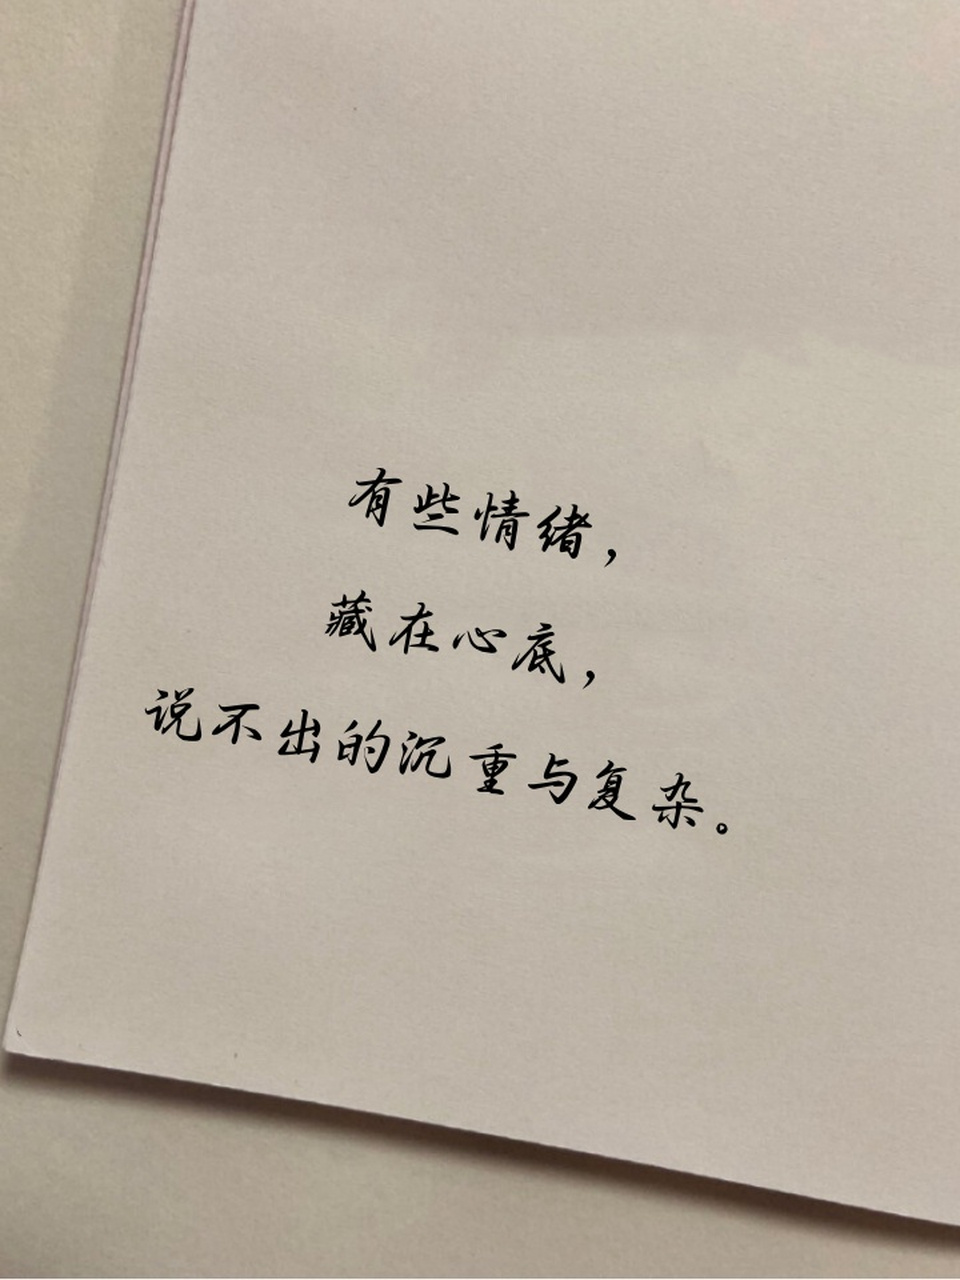 有些情绪，
藏在心底，
说不出的沉重与复杂。